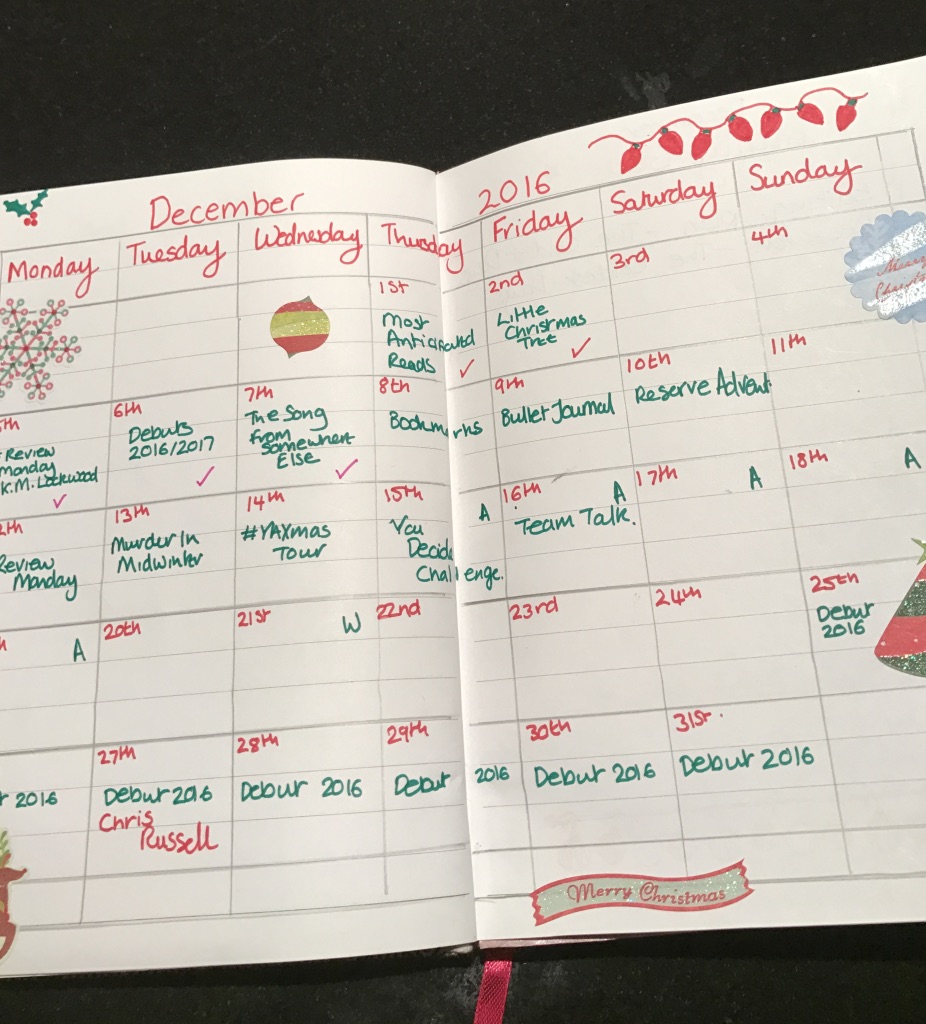 December
2016
Monday
Tuesday
Wednesday
Thursday
Friday
Saturday
Sunday
1st
Most
Anticipated
Reads
2nd
Little
Christmas
Tree
3rd
4th
Merry
Review
Monday
K.M. Lockwood
6th
Debuts
2016/2017
7th
The Song
from
Somewhere
Else
8th
Bookmarks
9th
Bullet Journal
10th
Reserve Advent
11th
Review
Monday
13th
Murder In
Midwinter
14th
#YAXmas
Tour
15th
A
You
Decide
Challenge.
16th
A
Team Talk.
17th
A
18th
A
A
20th
21st
W
22nd
23rd
24th
25th
Debut
2016
2016
27th
Debut 2016
Chris
Russell
28th
Debut 2016
29th
Debut 2016
30th
Debut 2016
31st.
Debut 2016
Merry Christmas